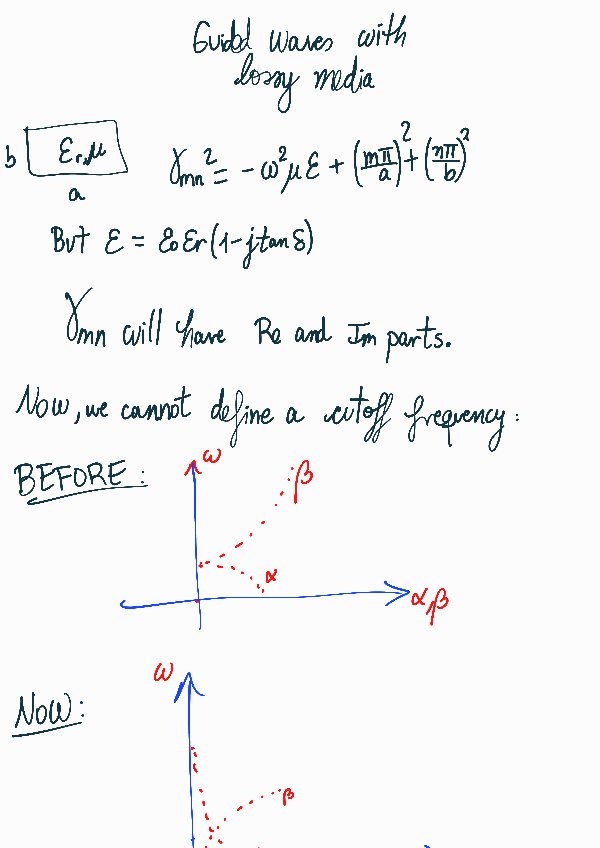 Guided waves with
lossy media
b
εr,μ
a
γmn² = -ω²με + (mπ/a)² + (nπ/b)²
But ε = ε0 εr (1-jtan δ)
γmn will have Re and Im parts.
Now, we cannot define a cutoff frequency:
BEFORE:
ω
β
α
α,β
ω
NOW:
β